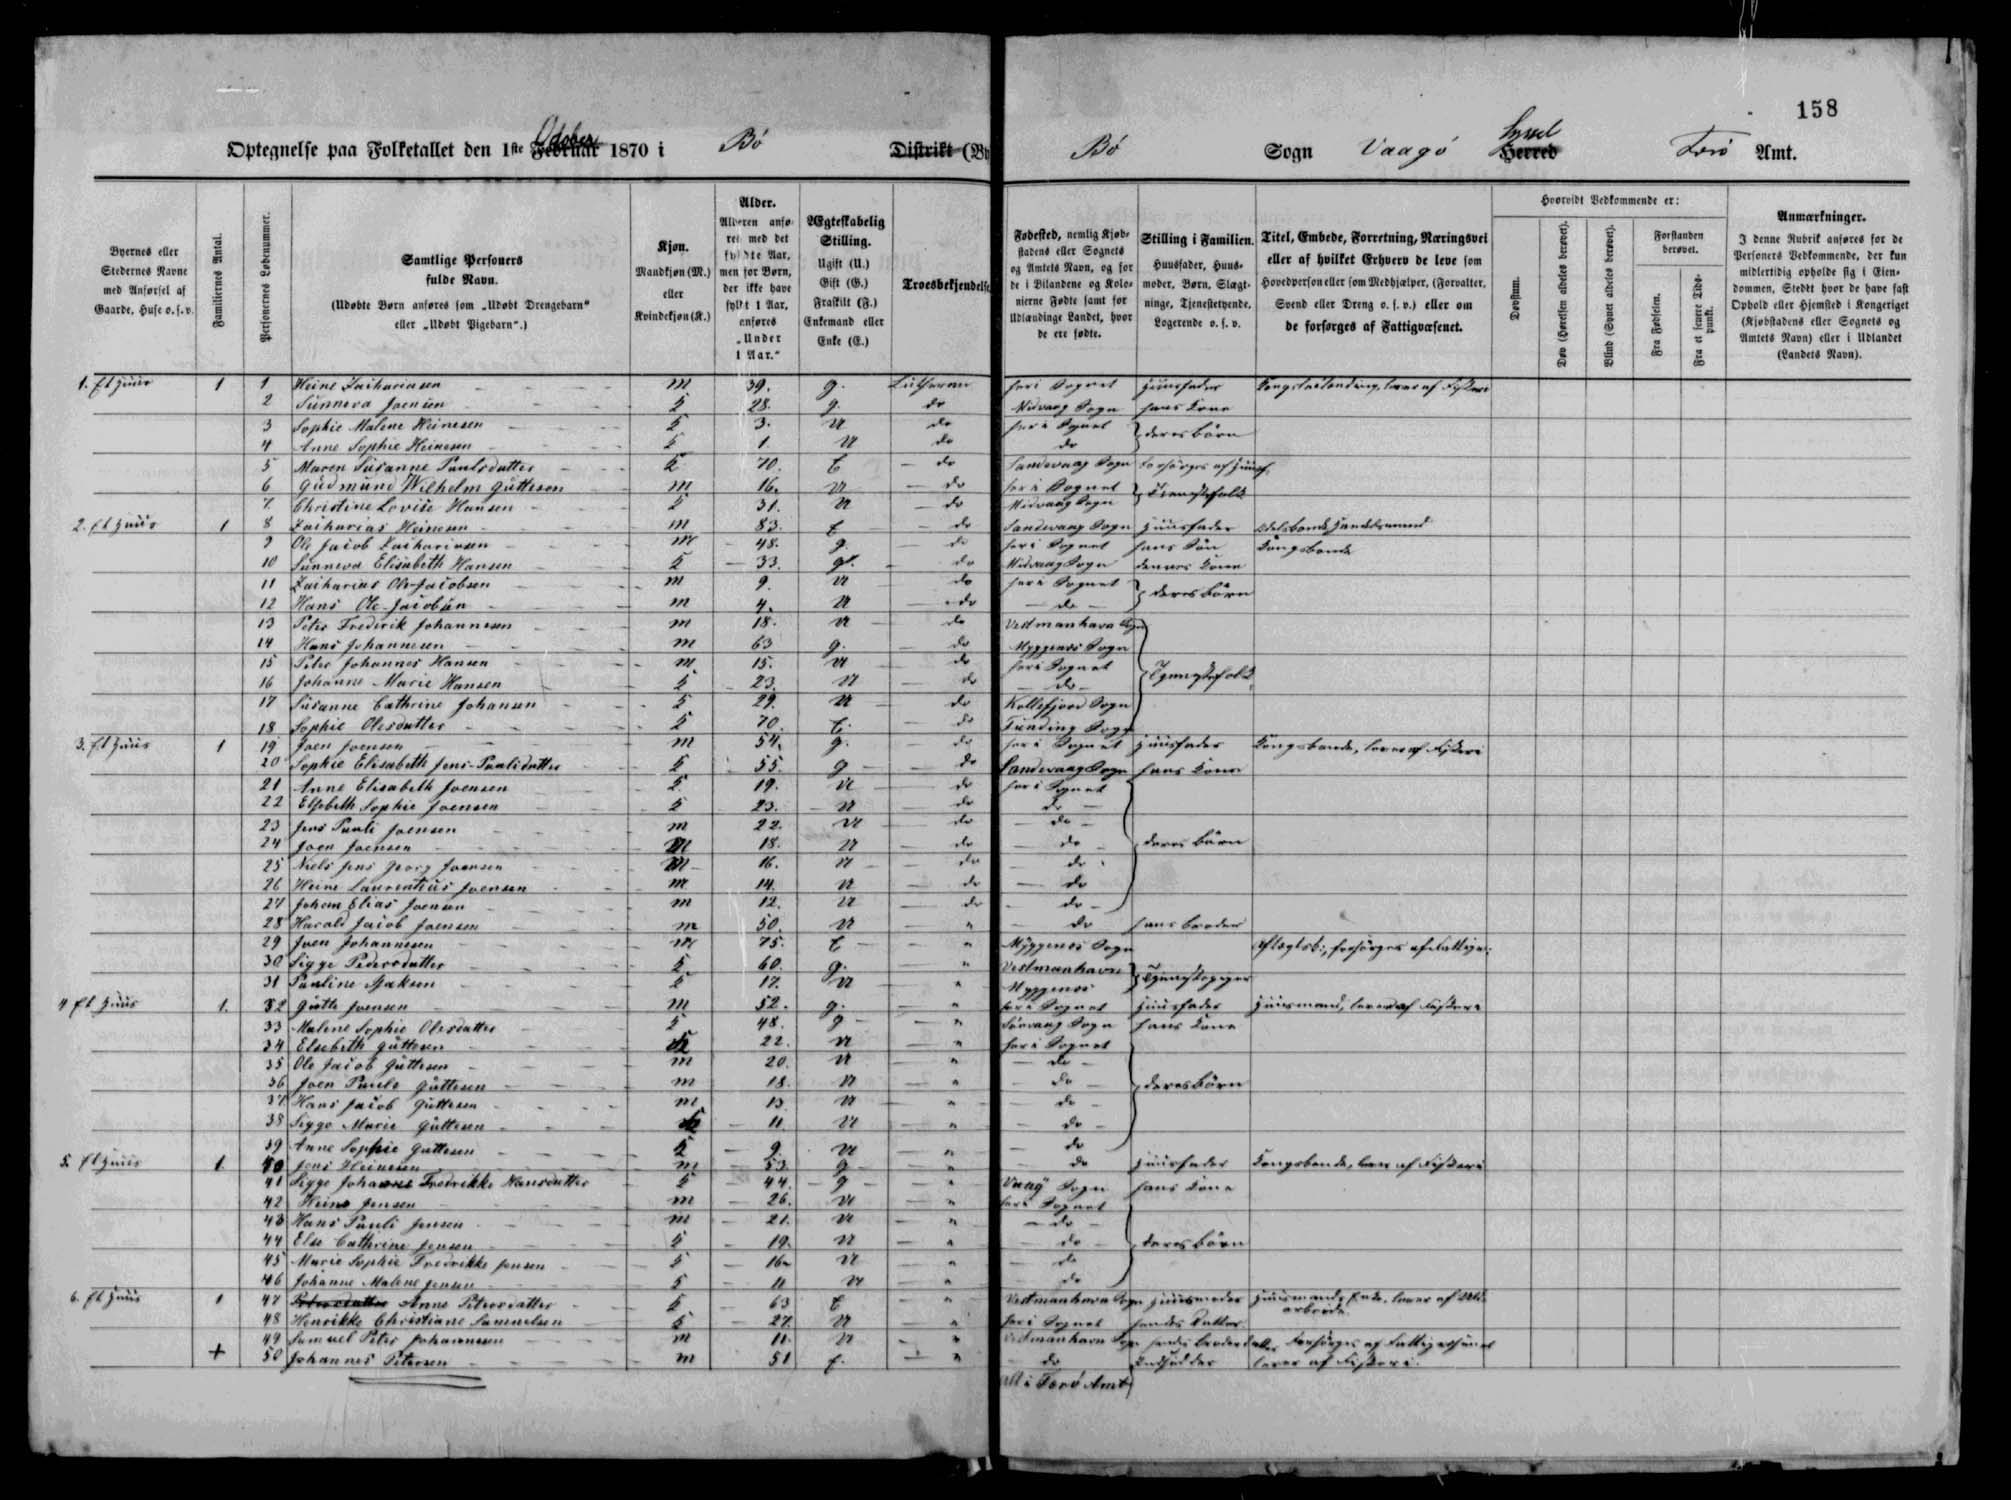 158
Optegnelse paa Folketallet den 1ste October Februar 1870 i Bö Distrikt (By
Bö Sogn Vaagö Syssel Herred Færö Amt.
Byernes eller Stedernes Navne med Anførsel af Gaarde, Huse o.s.v.
Familiernes Antal.
Personernes Løbenummer.
Samtlige Personers fulde Navn.
(Udøbte Børn anføres som „Udøbt Drengebarn“ eller „Udøbt Pigebarn“.)
Kjøn.
Mandkjøn (M.) eller Kvindekjøn (K.)
Alder.
Alderen anføres med det fyldte Aar, men for Børn, der ikke have fyldt 1 Aar, anføres „Under 1 Aar.“
Ægteskabelig Stilling.
Ugift (U.) Gift (G.) Fraskilt (F.) Enkemand eller Enke (E.)
Troesbekjendelse
Fødested, nemlig Kjøbstadens eller Sognets og Amtets Navn, og for de i Bilandene og Kolonierne Fødte samt for Udlændinge Landet, hvor de ere fødte.
Stilling i Familien.
Huusfader, Huusmoder, Børn, Slægtninge, Tjenestetyende, Logerende o. s. v.
Titel, Embede, Forretning, Næringsvei eller af hvilket Erhverv de leve som Hovedperson eller som Medhjælper, (Forvalter, Svend eller Dreng o. s. v.) eller om de forsørges af Fattigvæsenet.
Hvorvidt Vedkommende er:
Døvstum.
Døv (Hørelsen aldeles berøvet).
Blind (Synet aldeles berøvet).
Forstanden berøvet.
Fra Fødselen.
Fra et senere Tidspunkt.
Anmærkninger.
I denne Rubrik anføres for de Personers Vedkommende, der kun midlertidig opholde sig i Eiendommen, Stedet hvor de have fast Ophold eller Hjemsted i Kongeriget (Kjøbstadens eller Sognets og Amtets Navn) eller i Udlandet (Landets Navn).
1. Et Huus 1 1 Heine Zachariasen M 39. g. Lutheran her i Sognet Huusfader
2 Sunneva Joensen K 28. g. do Midvaag Sogn hans Kone
3 Sophie Malene Heinesen K 3. U do her i Sognet } deres börn
4 Anne Sophie Heinesen K 1. U do do
5 Maren Susanne Paulsdatter K 70. E do Sandevaag Sogn
6 Gudmund Wilhelm Guttesen M 16. U do her i Sognet } Tjenestefolk
7. Christine Lovise Hansen K 31. U do Midvaag Sogn
2. Et Huus 1 8 Zacharias Heinesen M 83. E do Sandevaag Sogn Huusfader
9 Ole Jacob Zachariasen M 48. g. do her i Sognet hans Sön Kongsbonde
10 Sunneva Elisabeth Hansen K 33. g. do Midvaag Sogn dennes Kone
11 Zacharias Ole-Jacobsen M 9 U do her i Sognet } deres börn
12 Hans Ole-Jacobsen M 4. U do do
13 Peter Frederik Johannesen M 18. U do Vestmanhavn Sogn
14 Hans Johannesen M 63 g. do Myggenæs Sogn
15 Peter Johannes Hansen M 15. U do her i Sognet } Tjenestefolk
16 Johanne Marie Hansen K 23. U do do
17 Susanne Cathrine Johansen K 29. U do Kollefjord Sogn
18 Sophie Olesdatter K 70. E. do Funding Sogn
3. Et Huus 1 19 Joen Joensen M 54. g. do her i Sognet Huusfader Kongsbonde, lever af Fiskeri
20 Sophie Elisabeth Jens-Paulisdatter K 55. g do Sandevaag Sogn hans Kone
21 Anne Elisabeth Joensen K 19. U do her i Sognet
22 Elsebeth Sophie Joensen K 23. U do do
23 Jens Pauli Joensen M 22. U do do
24 Joen Joensen M 18. U do do } deres börn
25 Niels Jens Georg Joensen M 16. U do do
26 Heine Laurentius Joensen M 14. U do do
27 Johan Elias Joensen M 12. U do do
28 Harald Jacob Joensen M 50. U " do hans broder
29 Joen Johannesen M 75. E " Myggenæs Sogn
30 Sigge Pedersdatter K 60. g. " Vestmanhavn }
31 Pauline Isaksen K 17. U " Myggenæs
4 Et Huus 1. 32 Gutte Joensen M 52. g. " her i Sognet Huusfader Huusmand, lever af Fiskeri
33 Malene Sophie Olesdatter K 48. g " Sörvaag Sogn hans Kone
34 Elsebeth Guttesen K 22. U " her i Sognet
35 Ole Jacob Guttesen M 20. U " do
36 Joen Paule Guttesen M 18. U " do } deres börn
37 Hans Jacob Guttesen M 13 U " do
38 Sigge Marie Guttesen K 11. U " do
39 Anne Sophie Guttesen K 9 U " do
5. Et Huus 1. 40 Jens Heinesen M 53. g " do Huusfader Kongsbonde, lever af Fiskeri
41 Sigge Johanne Fredrikke Hansdatter K 44. g " Sogn hans Kone
42 Heine Jensen M 26. U " her i Sognet
43 Hans Pauli Jensen M 21. U " do
44 Else Cathrine Jensen K 19. U " do } deres börn
45 Marie Sophie Fredrikke Jensen K 16. U " do
46 Johanne Malene Jensen K 11 U " do
6. Et Huus 1 47 Petersdatter Anne Petersdatter K 63 E " Vestmanhavn Sogn Huusmoder
48 Henrikke Christiane Samuelsen K 27. U " her i Sognet hendes Datter
49 Samuel Peter Johannesen M 11. U " Vestmanhavn Sogn forsörges af Fattigvæsenet
+ 50 Johannes Petersen M 51 " do lever af Fiskeri.
alt i Færö Amt